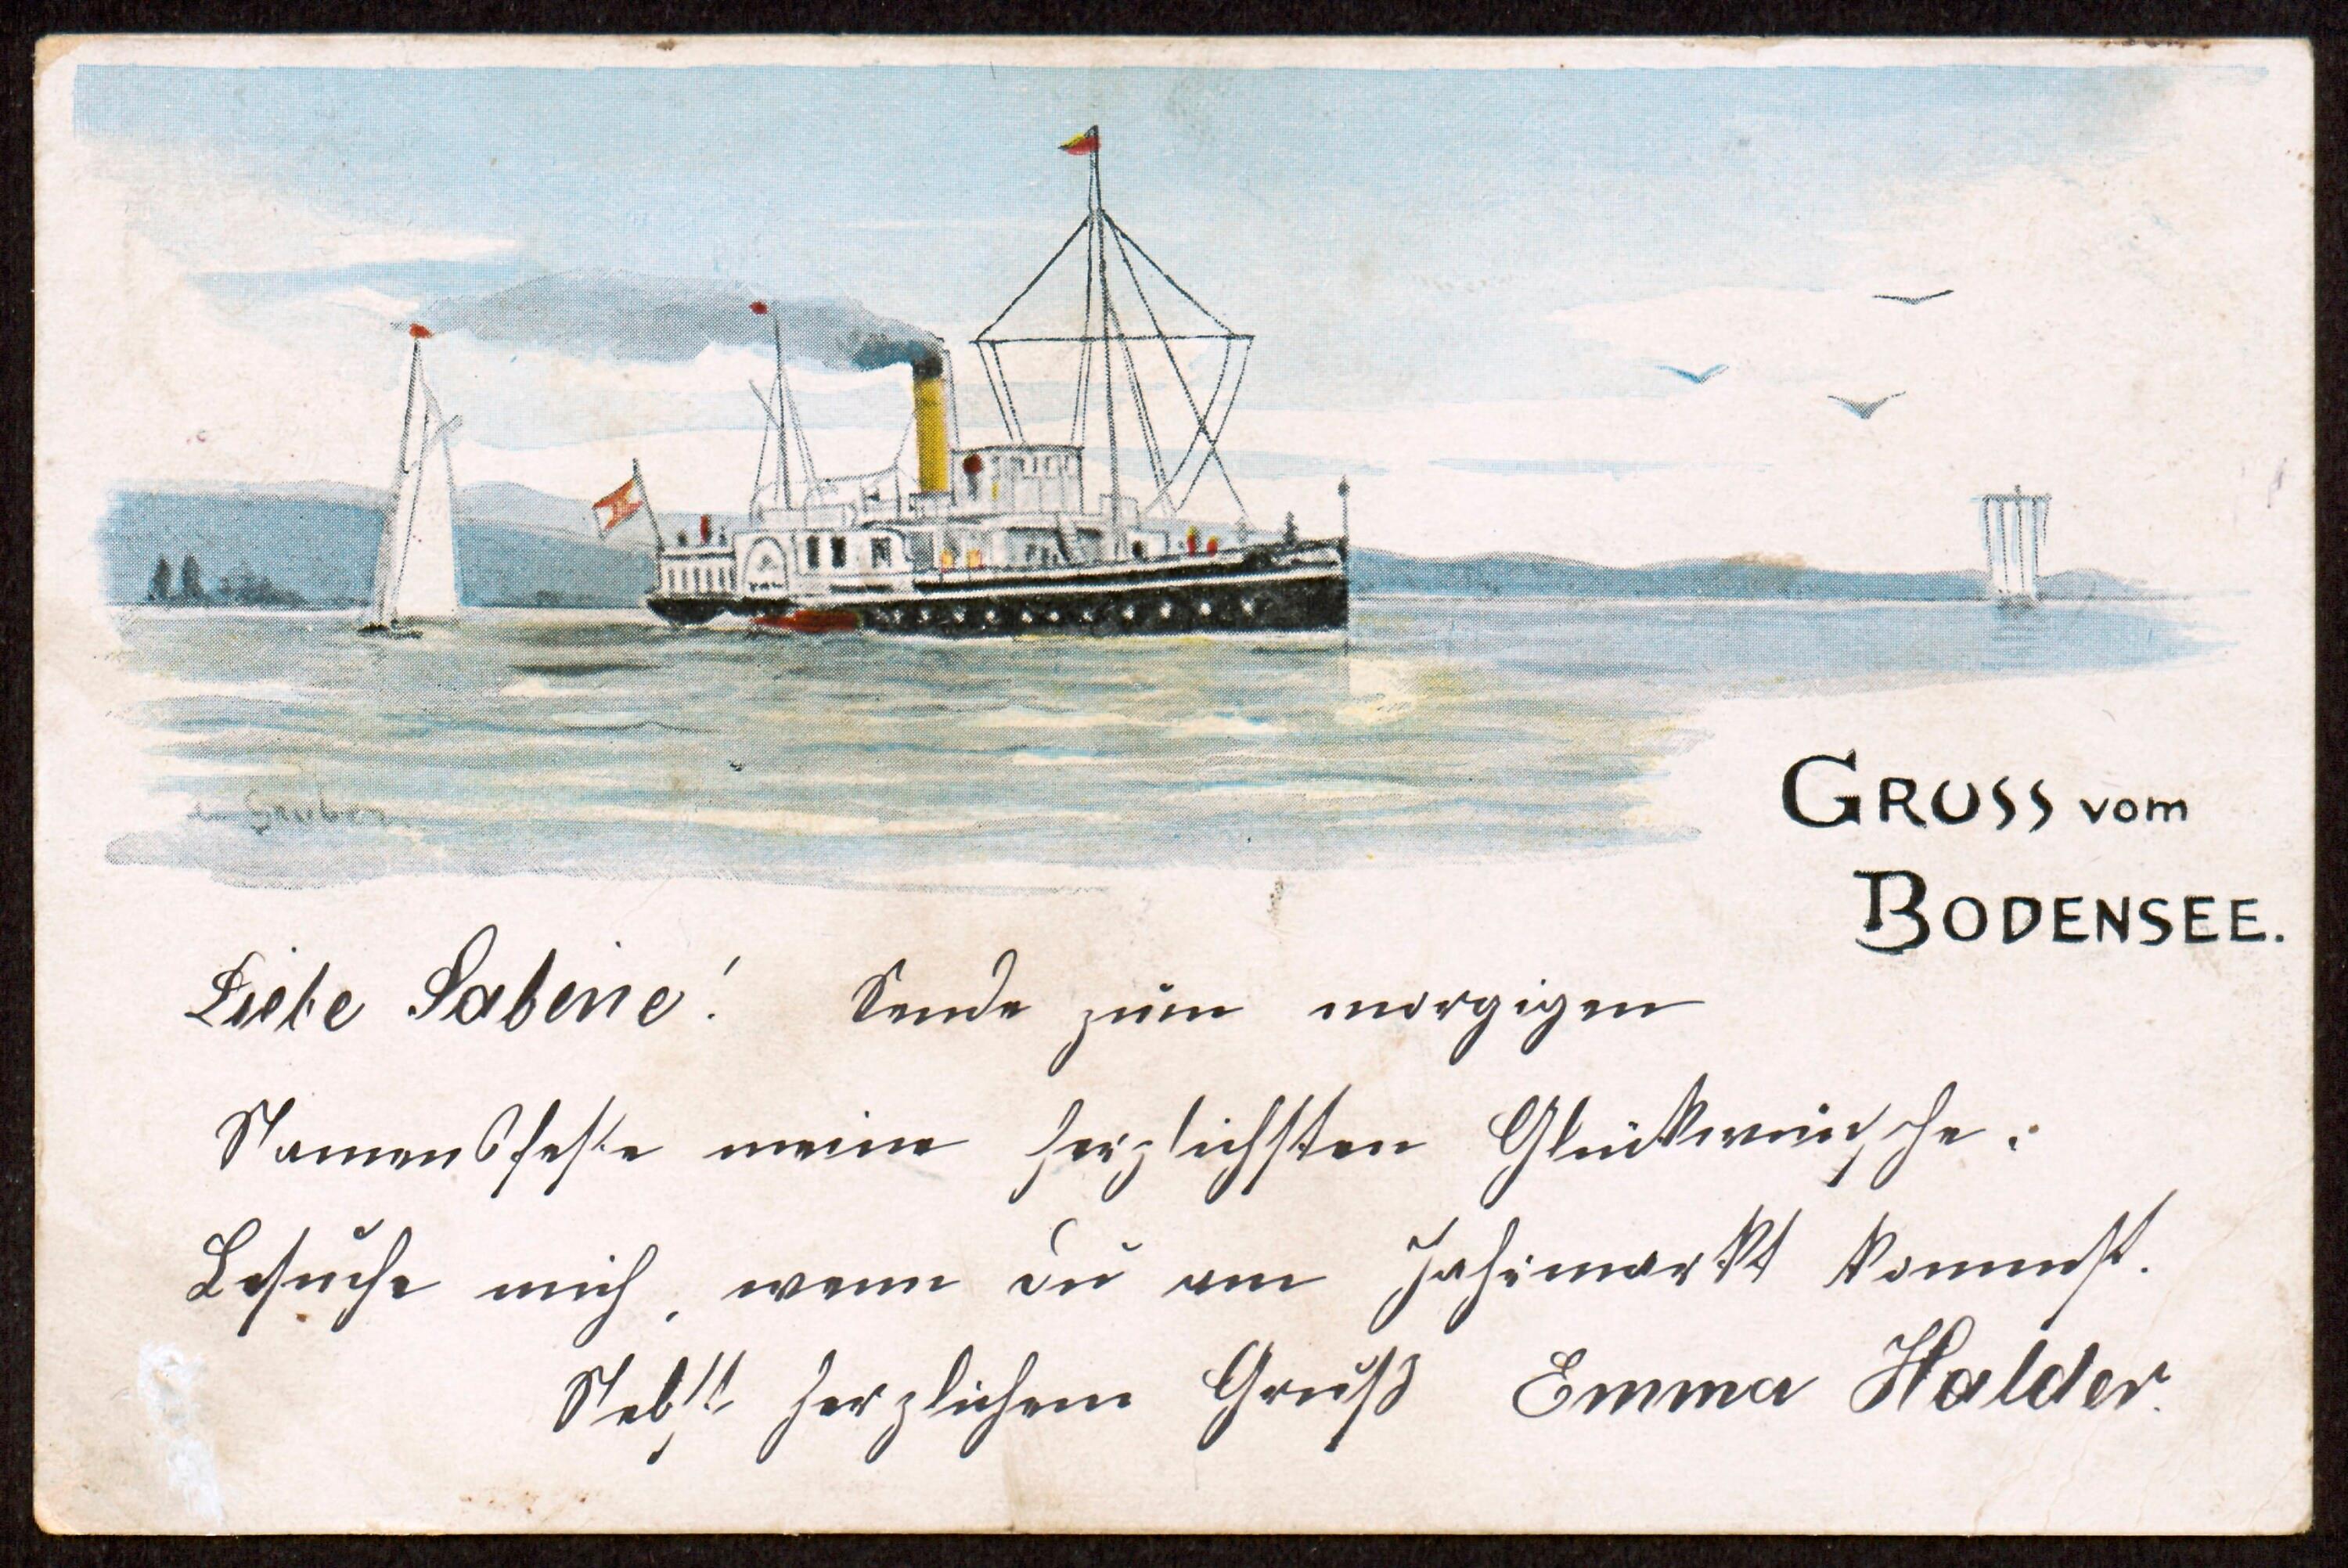 GRUSS vom
BODENSEE.
Liebe Sabine! Sende zum morgigen
Namensfeste meine herzlichsten Glückwünsche.
Besuche mich, wenn du am Jahrmarkt kommst.
Nebst herzlichem Gruß Emma Halder.